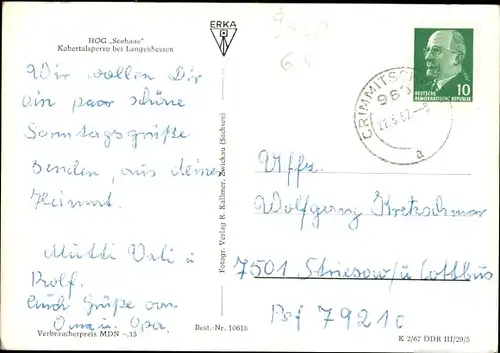 HOG „Seehaus"
Kobertalsperre bei Langenhessen
ERKA
Wir wollen Dir
ein paar schöne
Sonntagsgrüße
senden, aus deiner
Heimat.
Mutti Vati u
Rolf.
Auch Grüße von
Oma u. Opa.
Verbraucherpreis MDN -,15
Best.-Nr. 10618
Fotogr. Verlag R. Kallmer, Zwickau (Sachsen)
CRIMMITSCH
963
a
10
DEUTSCHE
DEMOKRATISCHE REPUBLIK
Uffz.
Wolfgang Kretschmar
7501 Striesow/ü Cottbus
Psf 7921c
K 2/67 DDR III/29/5